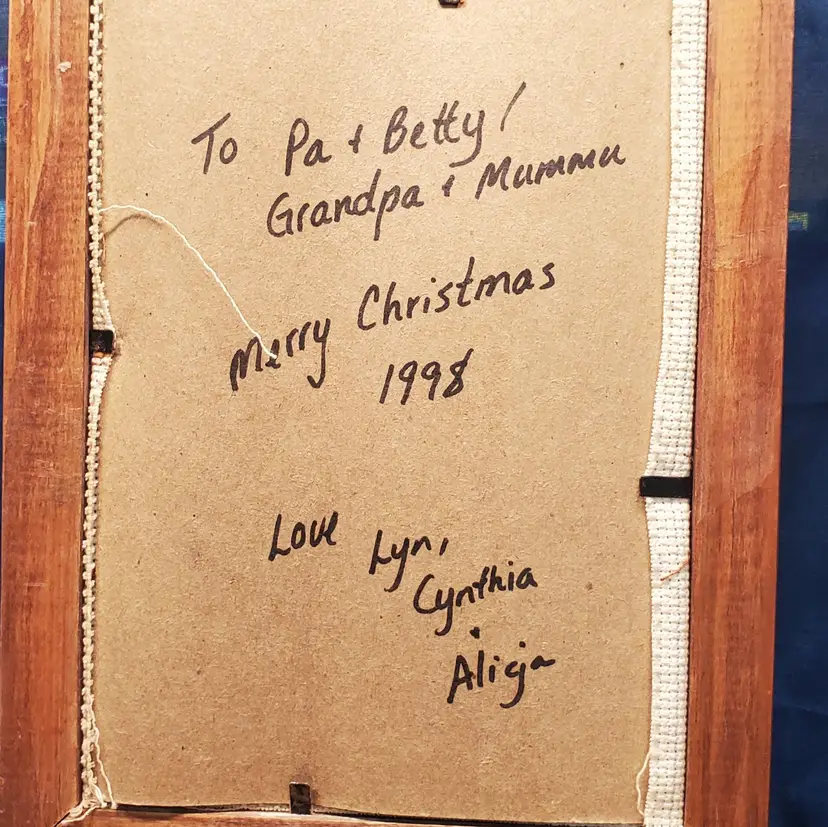 To Pa & Betty/
Grandpa & Mummu
Merry Christmas
1998
Love Lyn,
Cynthia
&
Alicja